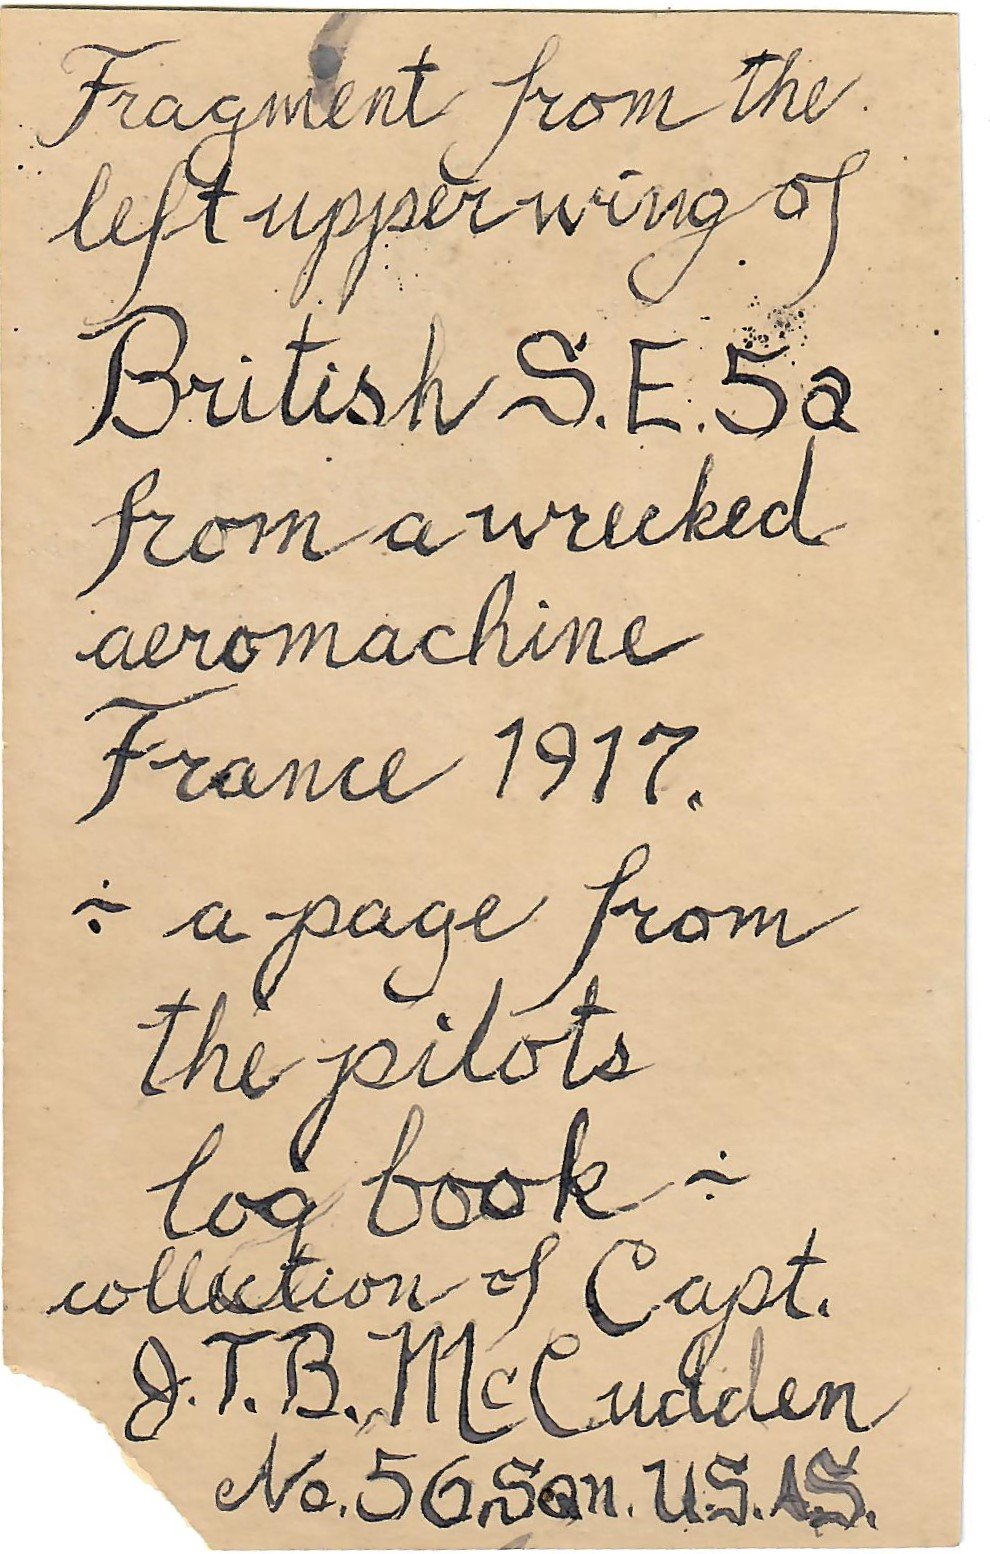 Fragment from the
left upper wing of
British S.E.5a
from a wrecked
aeromachine
France 1917.
÷ a page from
the pilots
log book ÷
collection of Capt.
J.T.B. McCudden
No. 56 Sqn. U.S.A.S.